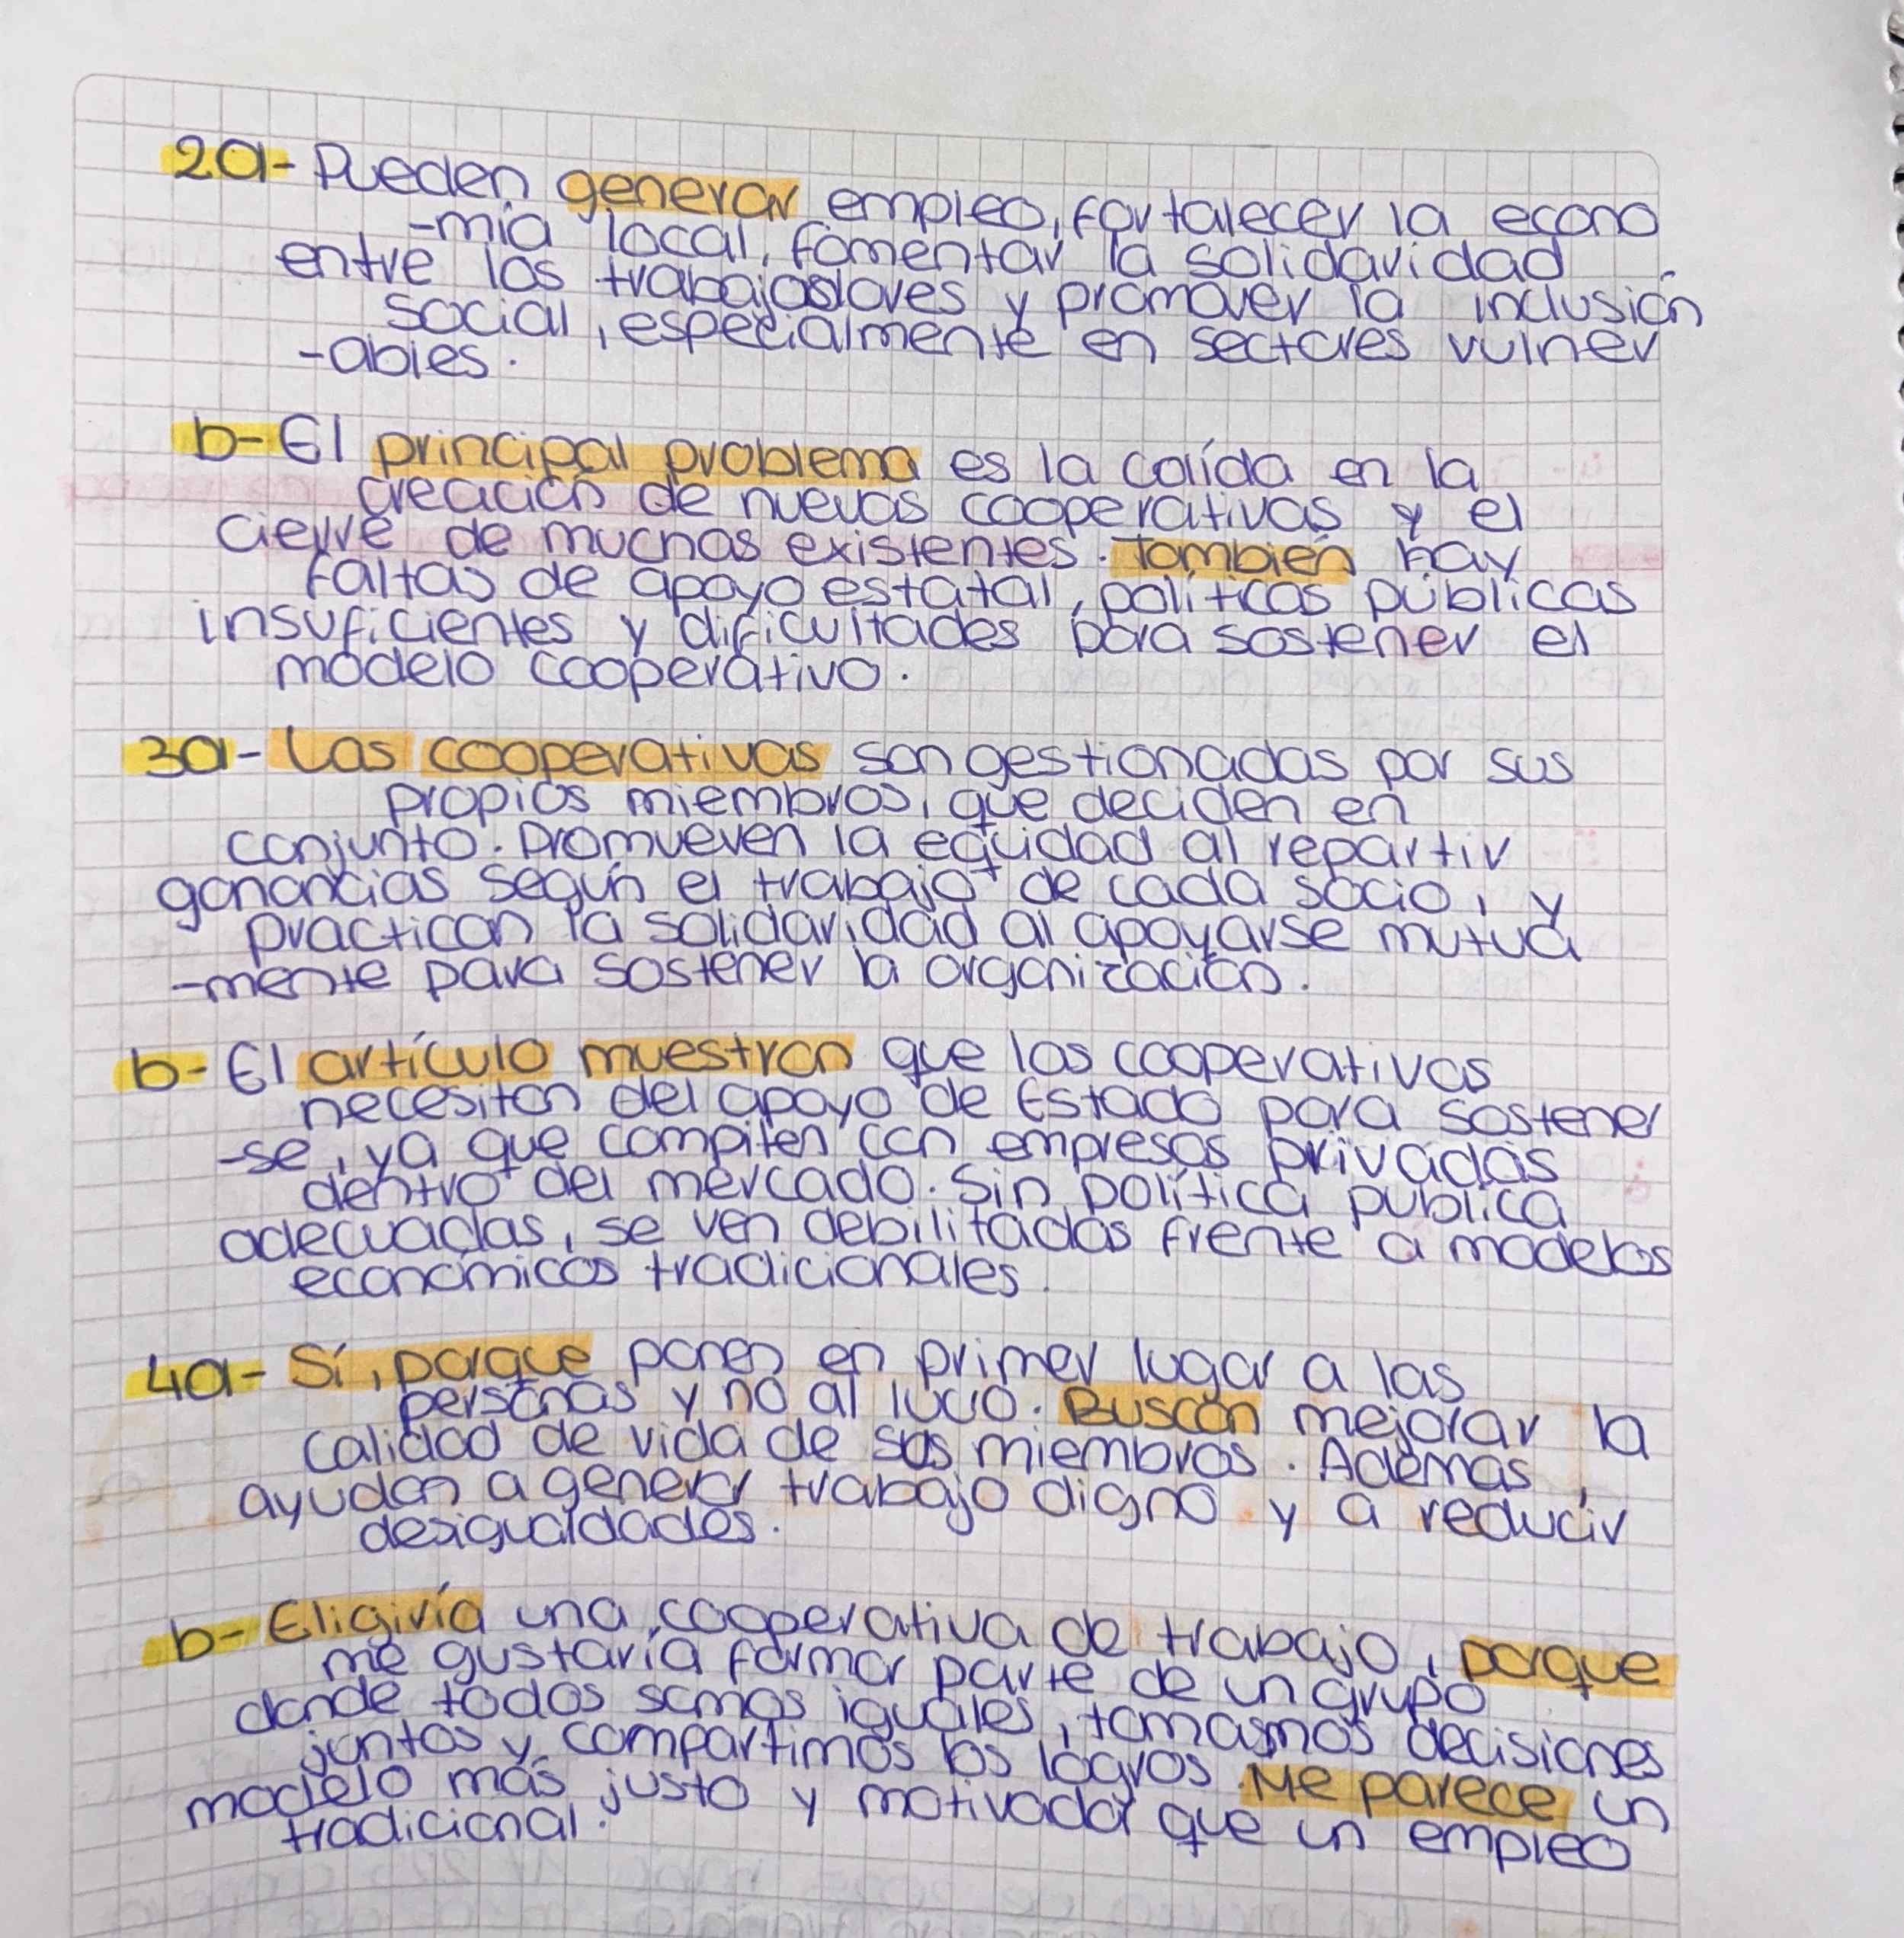 2a- Pueden generar empleo, fortalecer la econo
-mía local, fomentar la solidaridad
entre los trabajadores y promover la inclusión
social, especialmente en sectores vulner
-ables.
b- El principal problema es la caída en la
creación de nuevas cooperativas y el
cierre de muchas existentes. También hay
faltas de apoyo estatal, políticas públicas
insuficientes y dificultades para sostener el
modelo cooperativo.
3a- Las cooperativas son gestionadas por sus
propios miembros, que deciden en
conjunto. Promueven la equidad al repartir
ganancias según el trabajo de cada socio, y
practican la solidaridad al apoyarse mutua
-mente para sostener la organización.
b- El artículo muestran que las cooperativas
necesitan del apoyo de Estado para sostener
-se, ya que compiten con empresas privadas
dentro del mercado. Sin política pública
adecuadas, se ven debilitadas frente a modelos
económicos tradicionales.
4a- Sí, porque ponen en primer lugar a las
personas y no al lucro. Buscan mejorar la
calidad de vida de sus miembros. Además,
ayudan a generar trabajo digno y a reducir
desigualdades.
b- Eligiría una cooperativa de trabajo, porque
me gustaría formar parte de un grupo
donde todos somos iguales, tomasmos decisiones
juntos y compartimos los logros. Me parece un
modelo más justo y motivador que un empleo
tradicional.